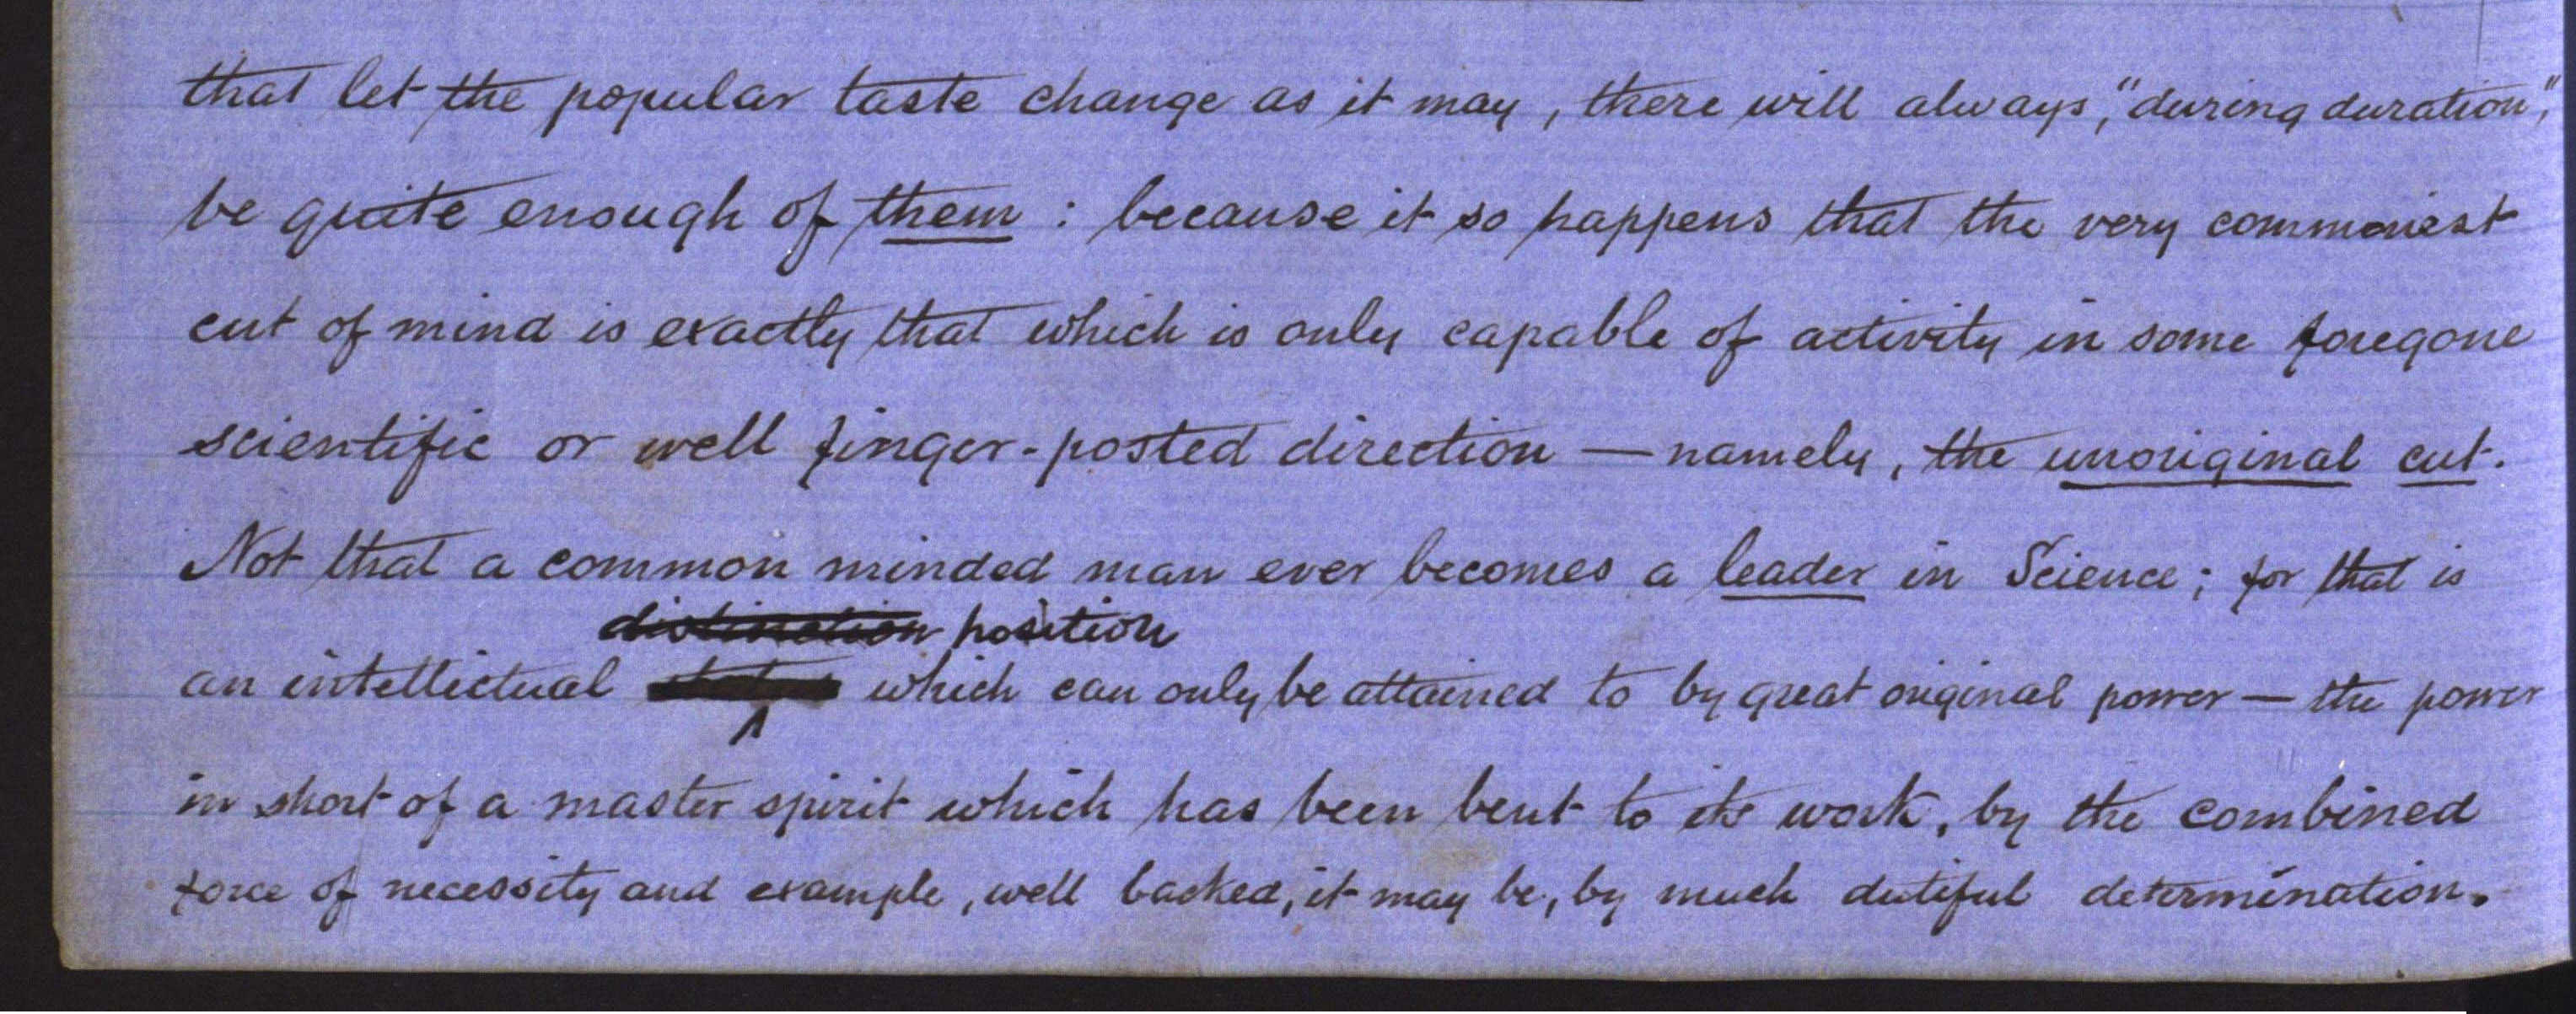 that let the popular taste change as it may, there will always, "during duration",
be quite enough of them : because it so happens that the very commonest
cut of mind is exactly that which is only capable of activity in some foregone
scientific or well finger-posted direction — namely, the unoriginal cut.
Not that a common minded man ever becomes a leader in Science; for that is
distinction position
an intellectual which can only be attained to by great original power — the power
in short of a master spirit which has been bent to its work, by the combined
force of necessity and example, well backed, it may be, by much dutiful determination.